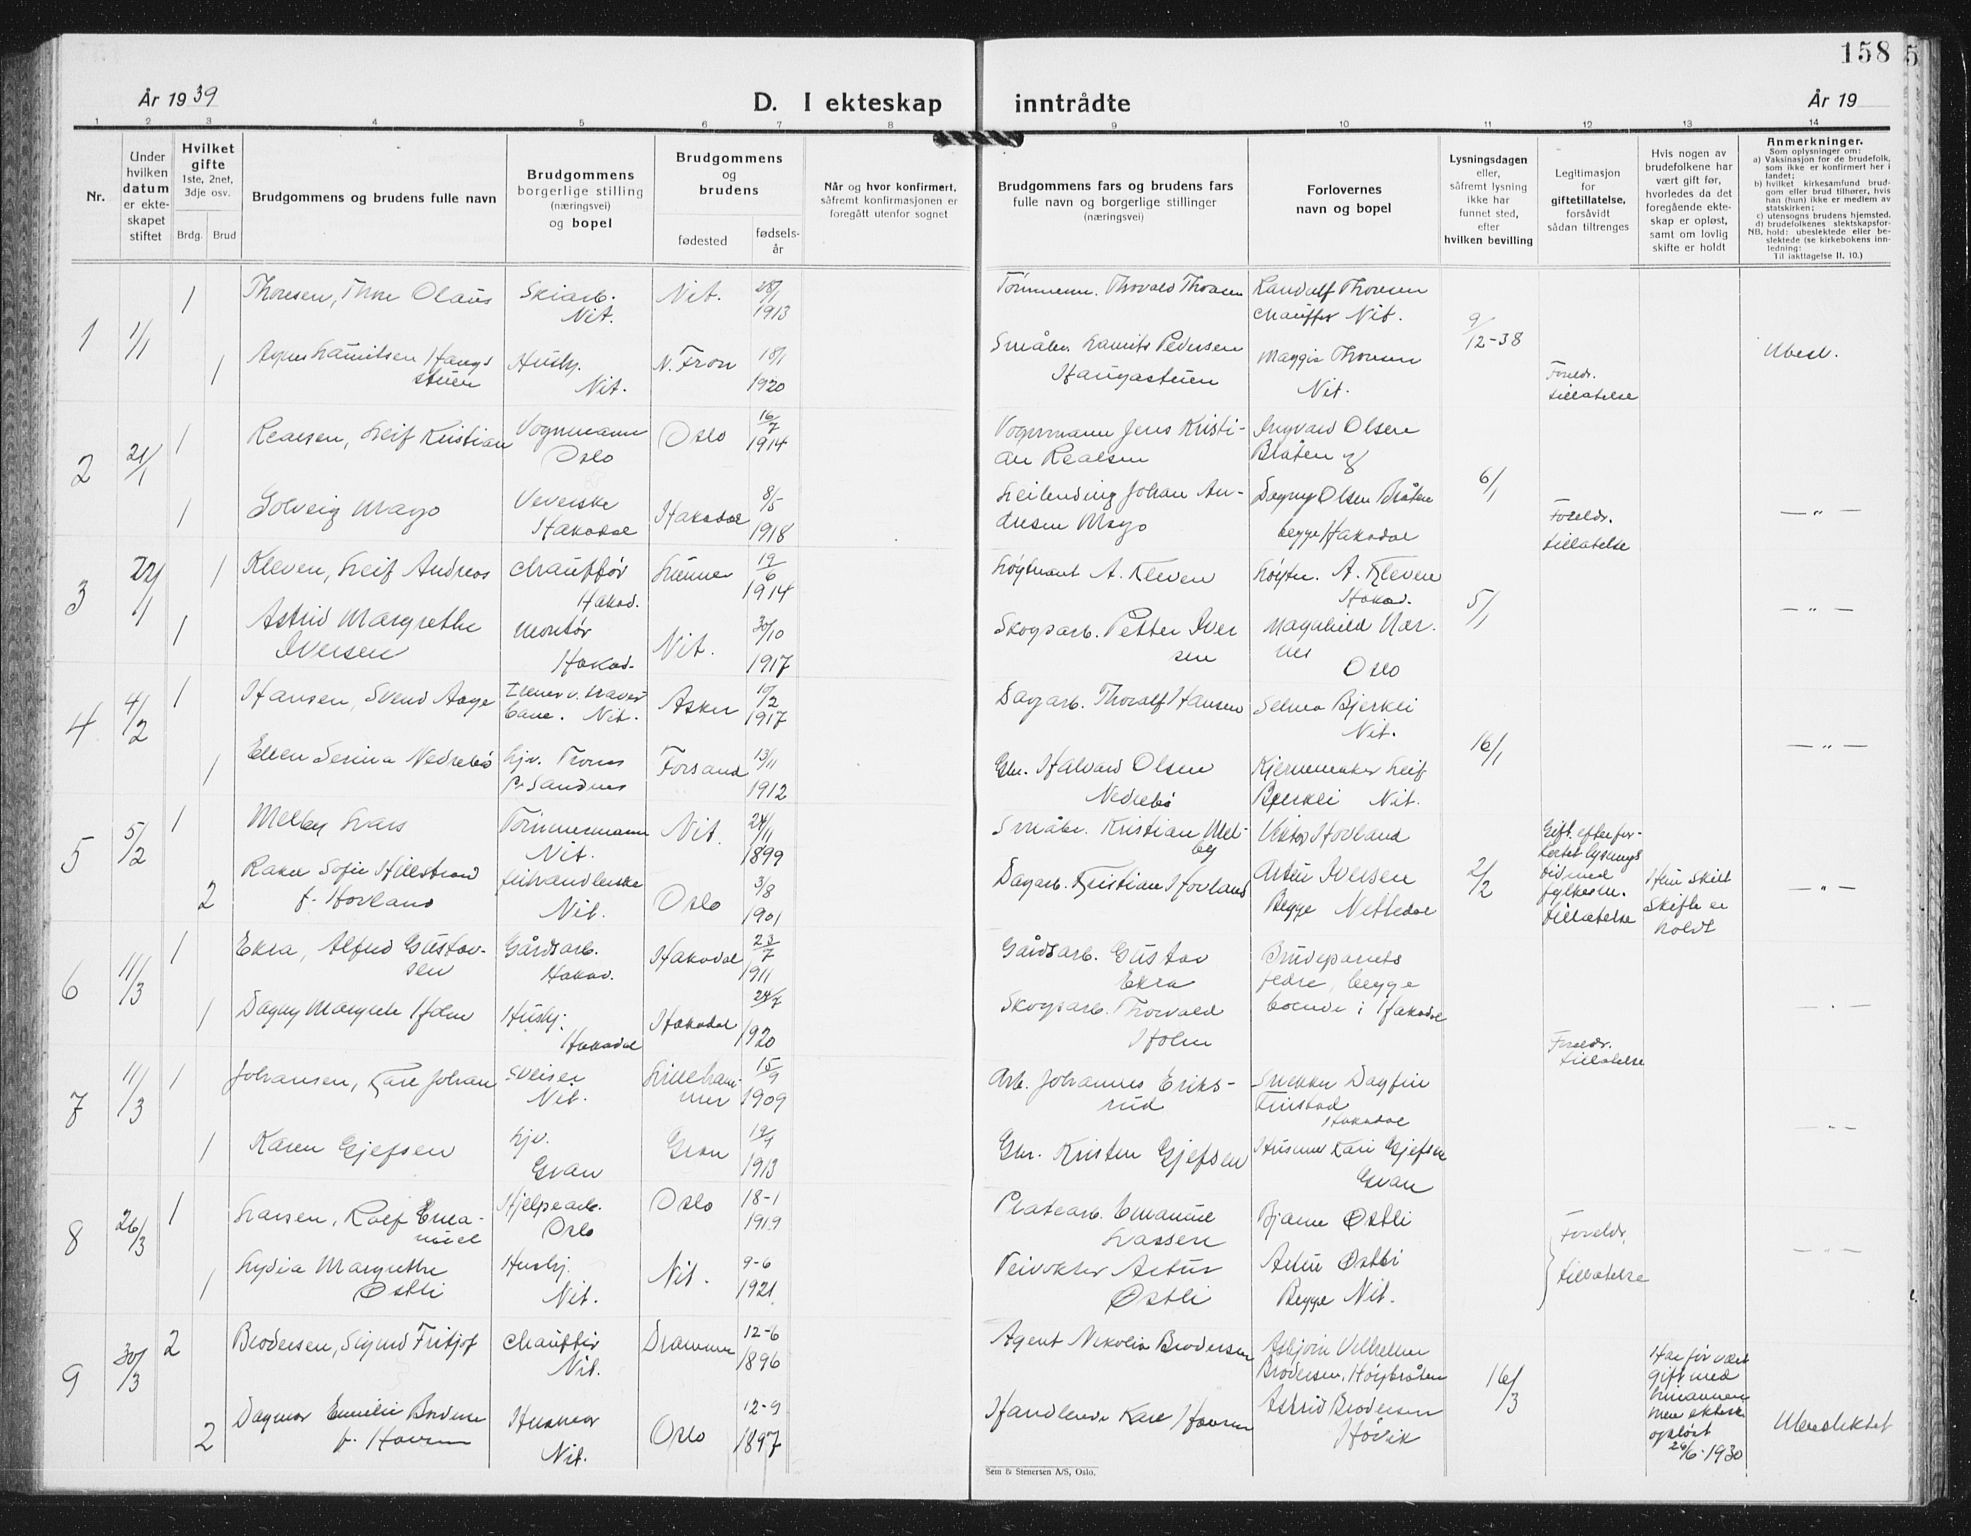 158
År 1939
D. I ekteskap inntrådte
År 19
1 2 3 4 5 6 7 8 9 10 11 12 13 14
Nr.
Under
hvilken
datum
er ekte-
skapet
stiftet
Hvilket
gifte
1ste, 2net,
3dje osv.
Brdg. Brud
Brudgommens og brudens fulle navn
Brudgommens
borgerlige stilling
(næringsvei)
og bopel
Brudgommens
og
brudens
fødested
fødsels-
år
Når og hvor konfirmert,
såfremt konfirmasjonen er
foregått utenfor sognet
Brudgommens fars og brudens fars
fulle navn og borgerlige stillinger
(næringsvei)
Forlovernes
navn og bopel
Lysningsdagen
eller,
såfremt lysning
ikke har
funnet sted,
efter
hvilken bevilling
Legitimasjon
for
giftetillatelse,
forsåvidt
sådan tiltrenges
Hvis nogen av
brudefolkene har
vært gift før,
hvorledes da det
foregående ekte-
skap er opløst,
samt om lovlig
skifte er holdt
Anmerkninger.
Som oplysninger om:
a) Vaksinasjon for de brudefolk,
som ikke er konfirmert her i
landet;
b) hvilket kirkesamfund brud-
gom eller brud tilhører, hvis
han (hun) ikke er medlem av
statskirken;
c) utensogns brudens hjemsted.
d) brudefolkenes slektskapsfor-
NB. hold: ubeslektede eller be-
slektede (se kirkebokens inn-
ledning:
Til iakttagelse II. 10.)
1 1/1 1 Thoresen, Thore Olaus Skiarb. Nit. Nit. 28/1 1913 Tømmerm. Thorvald Thoresen Randulf Thoresen
chauffør Nit. 9/12-38
1 Agnes Lauritsen Haugs
stuen Husbj. Nit. N. Fron 18/1 1920 Småbr. Laurits Pedersen
Haugastuen Maggie Thoresen
Nit. Foreldr.
tillatelse Ubesl.
2 21/1 1 Realsen, Leif Kristian Vognmann
Oslo Oslo 16/7 1914 Vognmann Jens Kristi-
an Realsen Ingvald Olsen
Bråten og 6/1
1 Solveig Mayo Veverske
Hakadal Hakadal 8/5 1918 Leilending Johan An-
dresen Mayo Dagny Olsen Bråten
begge Hakadal Foreldr.
tillatelse — " —
3 22/1 1 Kleven, Leif Andreas chauffør
Hakad. Lunner 19/6 1914 Løytnant A. Kleven Løytn. A. Kleven
Hakad. 5/1
1 Astrid Margrethe
Iversen montør
Hakad. Nit. 30/10 1917 Skogsarb. Petter Iver
sen Magnhild Nær-
nes
Oslo — " —
4 4/2 1 Hansen, Svend Aage Eleve v. traver-
bane. Nit. Asker 10/2 1917 Dagarb. Thoralf Hansen Selma Bjerkli
Nit. 16/1
1 Ellen Serina Nedrebø Hjv. Troms
p. Sandnes Forsand 13/11 1912 Gbr. Halvard Olsen
Nedrebø Kjernemaker Leif
Bjerkli Nit. — " —
5 5/2 1 Melby Lars Tømmermann
Nit. Nit. 24/11 1899 Småbr. Kristian Mel-
by Viktor Hovland Gift efter for-
kortet lysnings
tid med
fylkesm.
tillatelse
2 Raker Sofie Hillestrand
f. Hovland
Nit. Oslo 3/8 1901 Dagarb. Kristian Hovland Artur Iversen
Begge Nittedal 2/2 Hun skilt
Skifte er
holdt — " —
6 11/3 1 Ekra, Alfred Gustav-
sen Gårdsarb.
Hakad. Hakadal 23/7 1911 Gårdsarb. Gustav
Ekra Brudeparets
fedre, begge
boende i Hakadal
1 Dagny Margrete Holm Husbj.
Hakadal Hakadal 24/7 1920 Skogsarb. Thorvald
Holm Foreldr.
tillatelse — " —
7 11/3 1 Johansen, Kåre Johan Sveiser
Nit. Lilleham-
mer 15/9 1909 Arb. Johannes Eriks-
rud Snekker Dagfin
Finstad
Hakadal
1 Karen Gjefsen Hjv.
Gran Gran 19/9 1913 Gbr. Kristen Gjefsen Husmor Kari Gjefsen
Gran — " —
8 26/3 1 Larsen, Rolf Ema-
nuel Hjelpearb.
Oslo Oslo 18-1 1919 Platearb. Emanuel
Lassen Bjarne Østli Foreldr.
1 Lydia Margrethe
Østli Husbj.
Nit. Nit. 9-6 1921 Veivokter Artur
Østli Artur Østli
Begge Nit. tillatelse — " —
9 30/3 2 Brodersen, Sigurd Fritjof Chauffør
Nit. Drammen 12-6 1896 Agent Nikolin Brodersen Asbjørn Vilhelm
Brodersen, Høybråten 16/3
2 Dagmar Emilie Brodersen
f. Hovrn Husmor
Nit. Oslo 12-9 1897 Handlende Kare Hovrn Astrid Brodersen
Høvik Har før vært
gift med
hinannen
men ektesk.
opløst
26/6-1930 Ubeslektet
Sem & Stenersen A/S, Oslo.